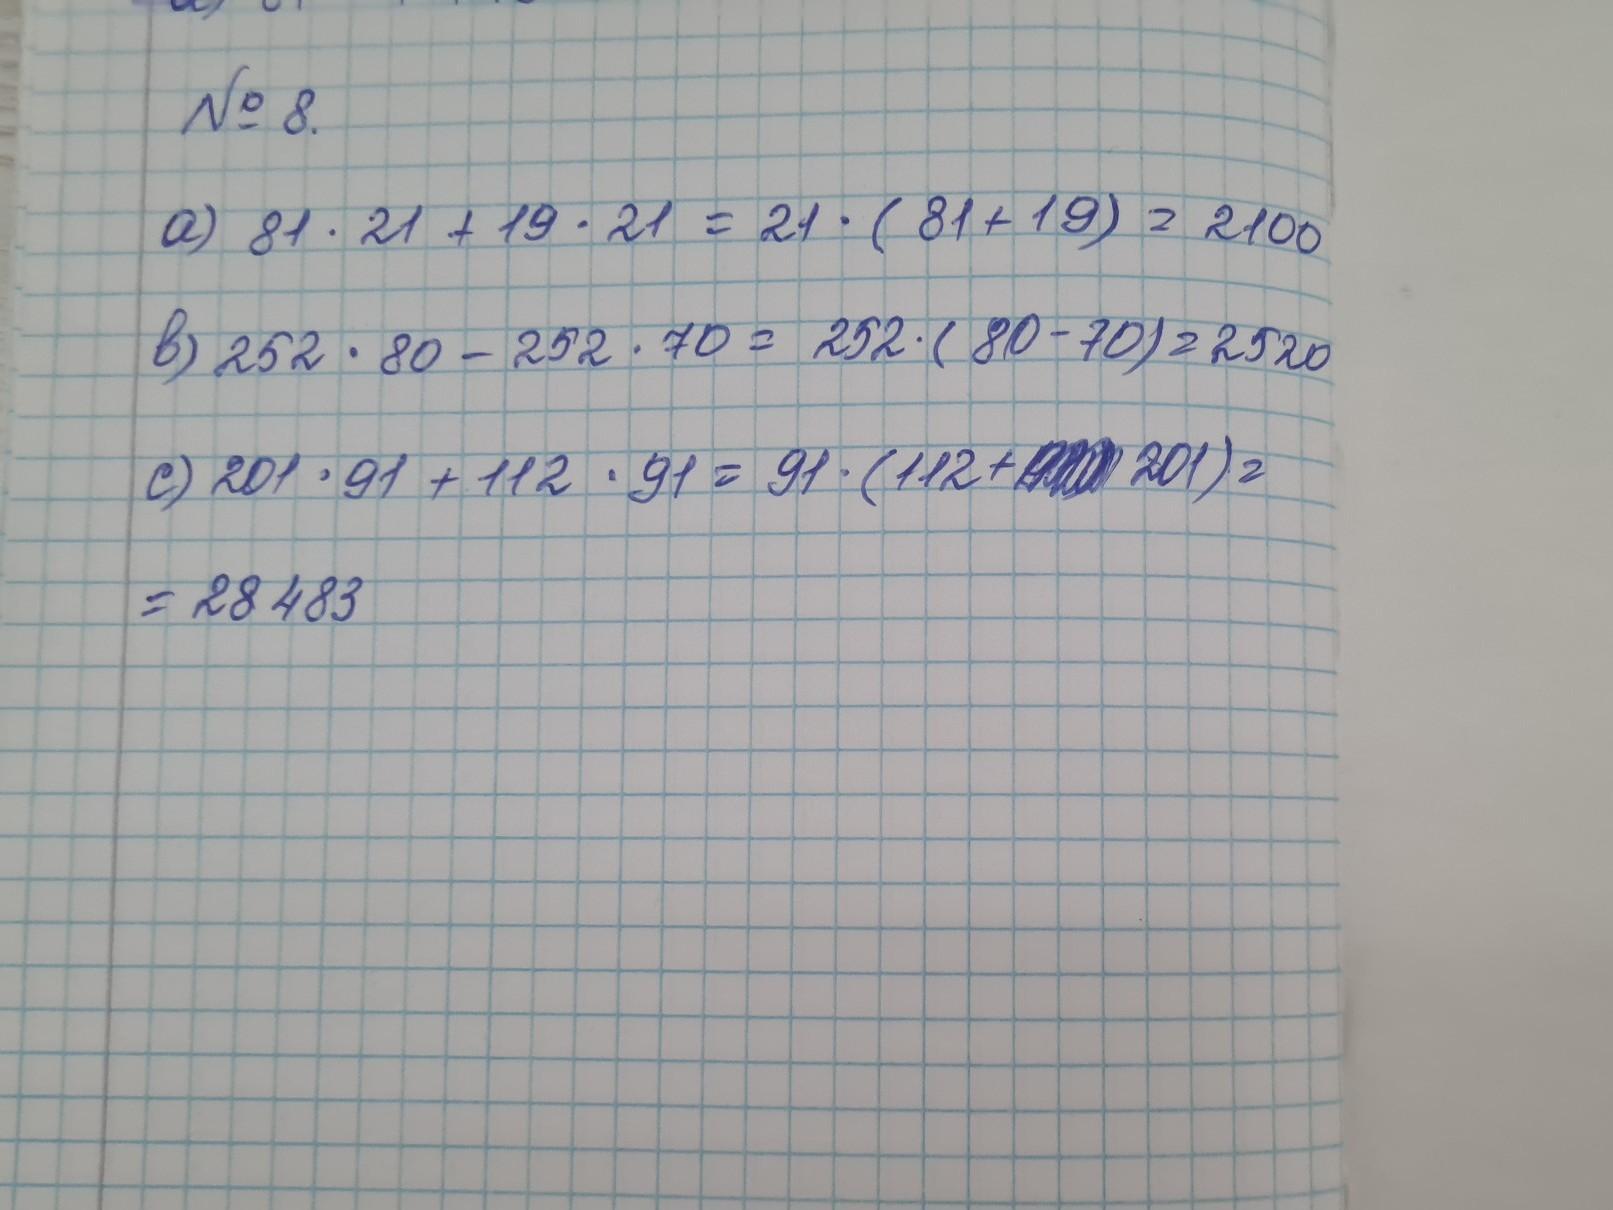 № 8.
a) 81 · 21 + 19 · 21 = 21 · ( 81 + 19) = 2100
b) 252 · 80 - 252 · 70 = 252 · ( 80 - 70) = 2520
c) 201 · 91 + 112 · 91 = 91 · (112 + 201) =
= 28 483